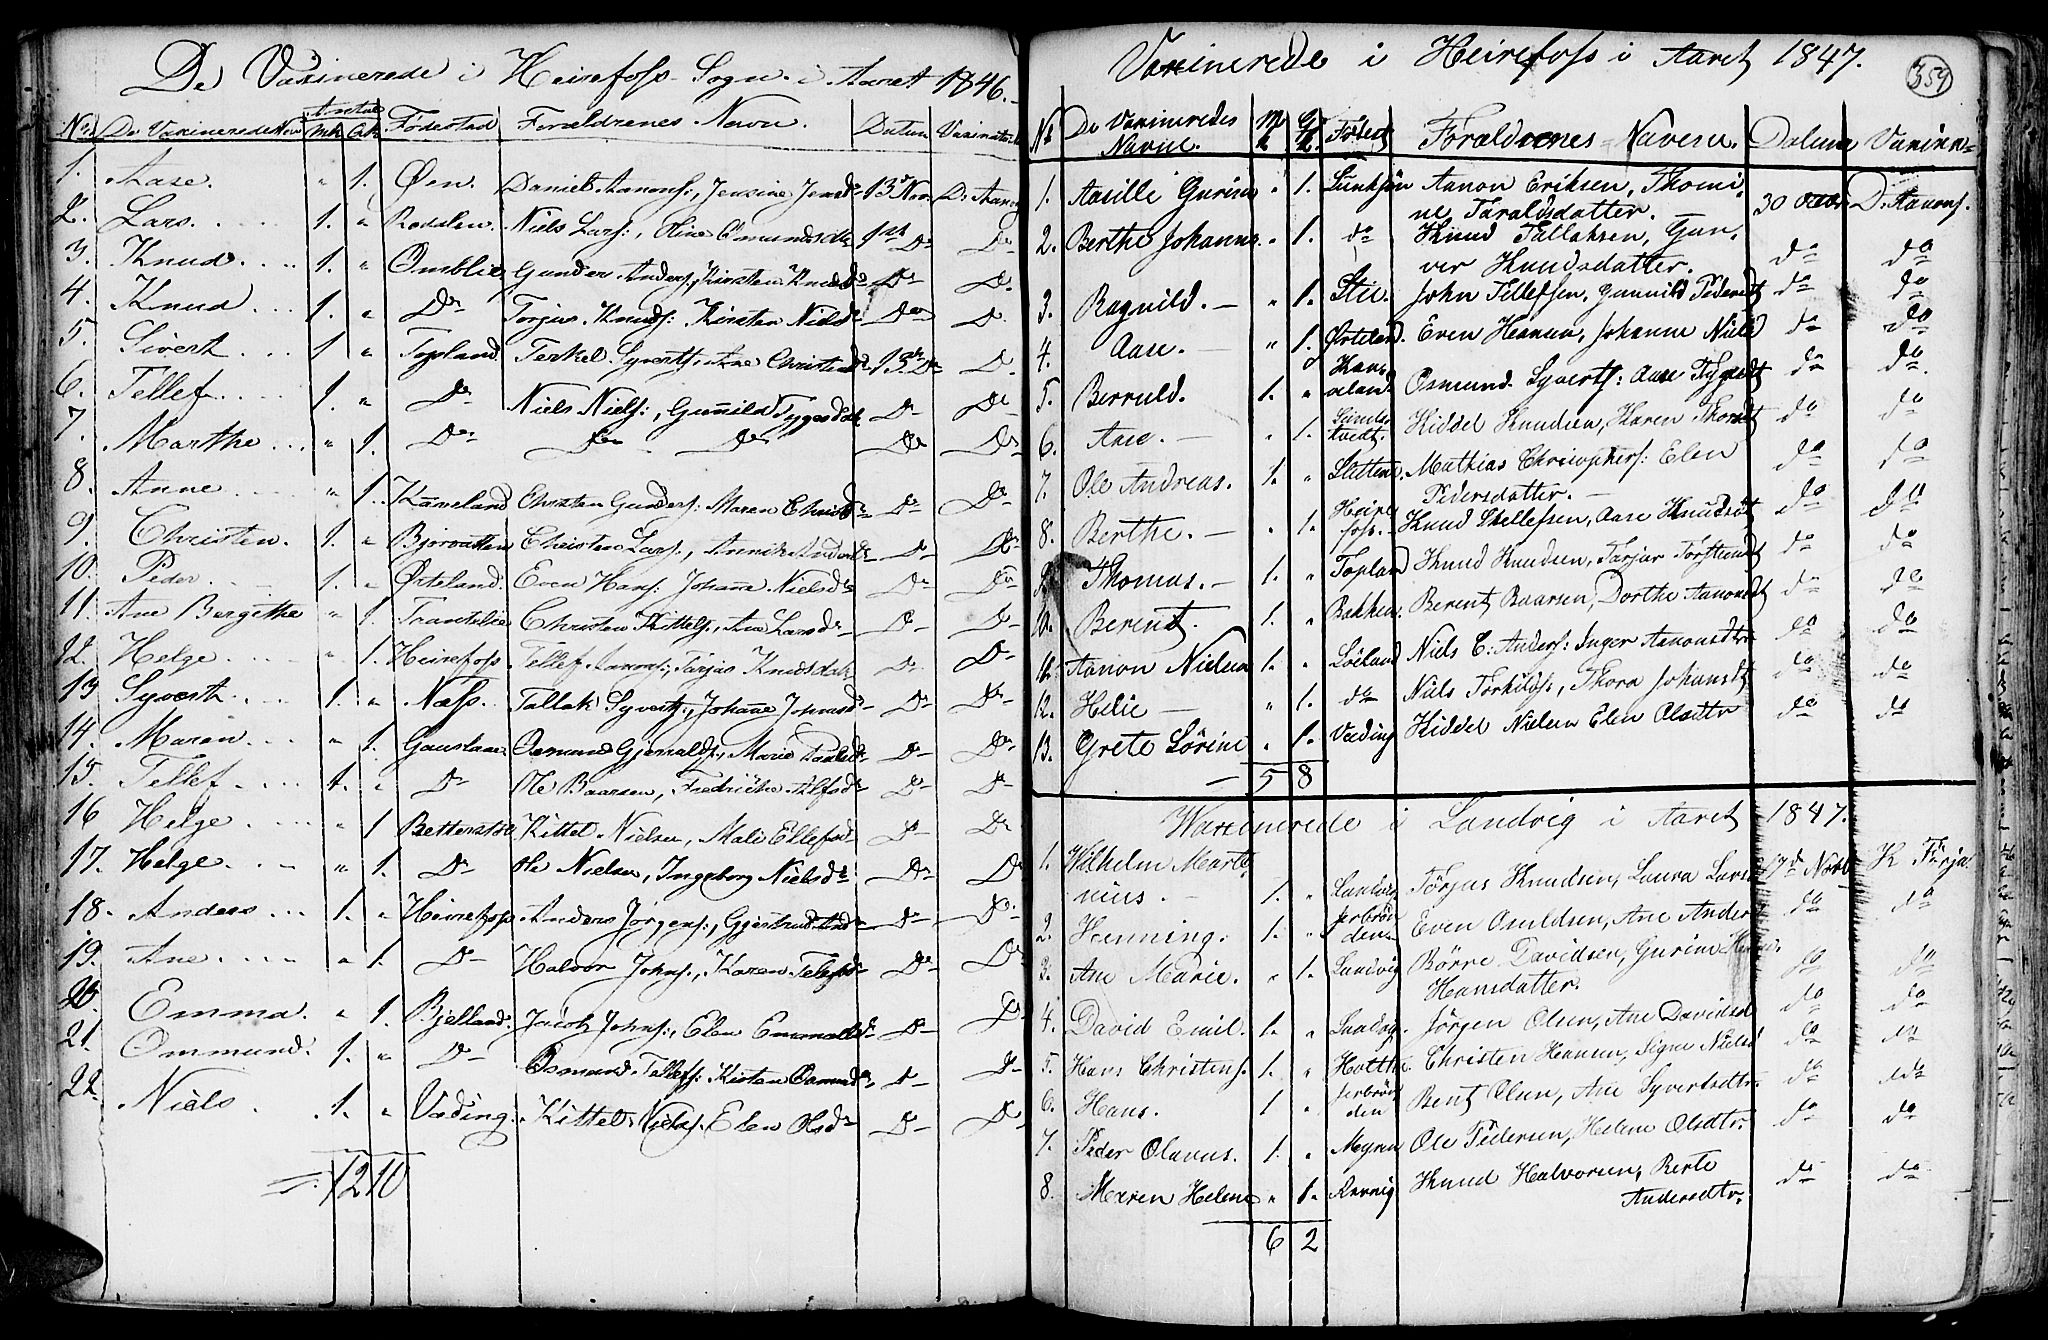 De Vaxinerede i Heirefoss Sogn i Aaret 1846.
No De Vaxineredes Navn Antal Mk Qk Fødested Forældrenes Navne. Datum Vaxinatr
1. Aase. " 1. Øen. Daniel Aanons:, Jensine Jensd 13d Nov. D. Aanons
2. Lars. 1. " Niels Lars:, Oline Osmundsdtr 1st Do Do
3. Knud. 1. " Omblie Gunder Anders:, Kirsten Knudsd Do Do
4. Knud 1. " Do Torjus Knuds: Kirsten Nielsd Do D.
5. Sivert 1 " Topland Terkel Syverts:, Ane Christensd 13de Do D.
6. Tellef 1. " Do Niels Niels:, Gunnild Tygesdtr Do Do
7. Marthe " 1. Do Do Do Do Do
8. Anne " 1. Kaneland Christen Gunders: Maren Christd Do Do
9. Christen. 1. " Bjorvatten Christen Lars:, Do Do
10. Peder 1. " Ørteland. Even Hans: Johanne Nielsd Do Do
11. Ane Bergithe " 1. Christen Kittels:, Ane Larsd Do Do
12. Helge " 1. Heirefoss Tellef Aanons:, Torjus Knudsdtr Do Do
13 Syvert 1. " Næss. Tallak Syverts:, Johanne Johnsd Do Do
14. Maren " 1. Osmund Do Do
15. Tellef 1. " Do Ole Baarsen, Fredrikke Alfsd Do Do
16 Helge " 1 Kittel Nielsen, Mali Ellefsd Do Do
17. Helge " 1. Do Ole Nielsen, Ingeborg Nielsd Do Do
18. Anders 1. " Heirefoss Anders Jørgens:, Do Do
19. Ane " 1. Do Halvor Johns:, Karen Tellefsd Do Do
20. Emma. " 1. Bjelland. Jacob Johns:, Elen Do Do
21. Ommund. 1. " Do Osmund Tellefs: Kirsten Osmundsd Do Do
22 Niels 1. " Væding. Kittel Niels: Elen Olsd Do Do
12 10
359
Vaxinerede i Heirefoss i Aaret 1847.
No De Vaxineredes Navne. M. Q. Føsed Forældrenes Navene. Datum Vaxina=
1. Aasille Gurine " 1. Aanon Eriksen, Thomi=
ne Taraldsdatter. 30 D. Aanons.
2. Berthe Johanne " 1. do Knud Tallaksen, Gun=
ver Knudsdatter. do do
3. Ragnild. " 1. Stie. John Tellefsen, Gunnild Pedersdt do do
4. Aase. " 1. Ørteland. Even Hansen, Johanne Nielsd do do
5. Berruld. 1. " Kane=
land Osmund Syverts: Aase Tygesdt do do
6. Aase. " 1. Kiddel Knudsen, Karen do do
7. Ole Andreas. 1. " Slettene Mathias Christophers: Elen
Pedersdatter. do do
8. Berthe. " 1. Heire
foss. Knud Skellessen, Aase Knudsdt do do
9. Thomas. 1. " Topland Knud Knudsen, do do
10. Berent. 1. " Bakken. Berent Baarsen, Dorthe Aanonsdt do do
11. Aanon Nielsen 1. " Løiland Niels C: Anders: Inger Aanonsdtr do do
12. Helie " 1. do Niels Torkilds:, Thora Johansdt do do
13. Grete Sørine " 1. Væding Kiddel Nielsen Elen Olsdtr do do
5 8
Vaxinerede i Landvig i Aaret 1847.
1. Wilhelm Marti=
nius. 1. " Landvig Torjus Knudsen, Laura Larsd 17d Novb K Torja
2. Henning. 1. " Jerbrøn
den. Even Osuldsen, Ane Andersd do do
3. Ane Marie. " 1. Landvig Børre Davidsen, Gurine
Hansdatter. do do
4. David Emil. 1. " Landvig. Jørgen Olsen, Ane Davidsd do do
5. Hans Christens. 1. " Christen Hansen, Signe Nielsd do do
6. Hans. 1 " Jerbrøn
den Bent Olsen, Ane Syvertsdtr. do do
7. Peder Olavus. 1. " Myren Ole Pedersen, Helene Olsdtr. do do
8. Maren Helene " 1. Knud Halvorsen, Berte
Andersdtr. do do
6 2